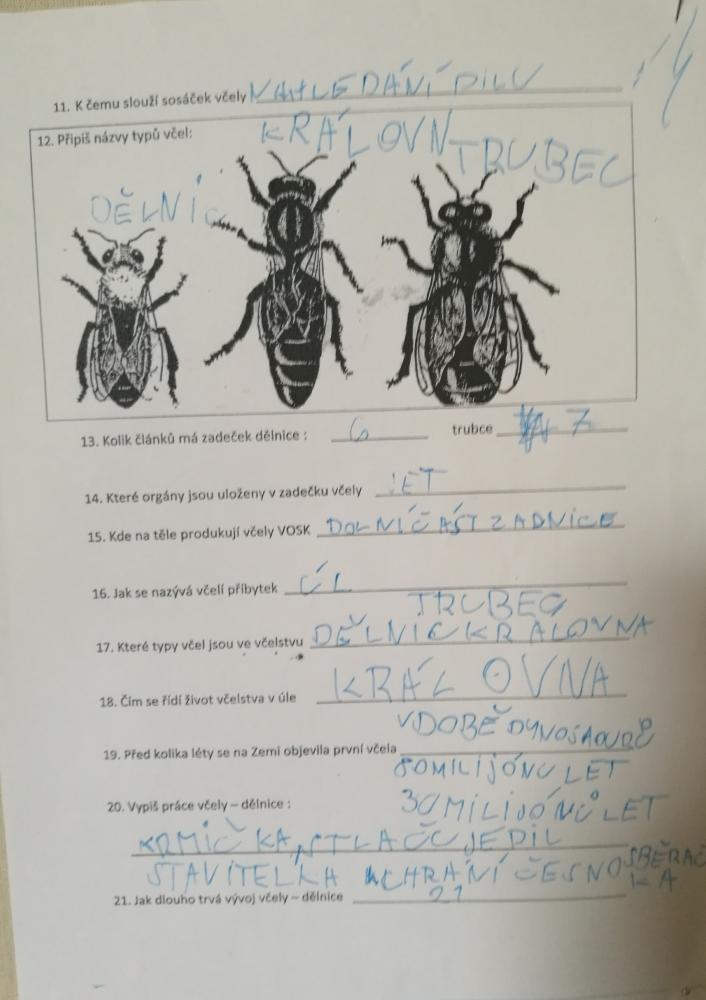 11. K čemu slouží sosáček včely NAHLEDÁNÍ PILU
12. Připiš názvy typů včel:
KRÁLOVN TRUBEC
DĚLNIC
13. Kolik článků má zadeček dělnice : 6 trubce 7
14. Které orgány jsou uloženy v zadečku včely
15. Kde na těle produkují včely VOSK DOLNÍ ČÁST ZADNICE
16. Jak se nazývá včelí příbytek ÚL
TRUBEC
17. Které typy včel jsou ve včelstvu DĚLNIC KRALOVNA
18. Čím se řídí život včelstva v úle KRÁLOVNA
V DOBĚ DYNOSAURŮ
19. Před kolika léty se na Zemi objevila první včela
80 MILIJÓNU LET
20. Vypiš práce včely – dělnice : 30 MILIJÓNŮ LET
KRMIČKA, STLAČUJE PIL
STAVITELKA CHRÁNÍ ČESNO SBĚRAČKA
21. Jak dlouho trvá vývoj včely – dělnice 21